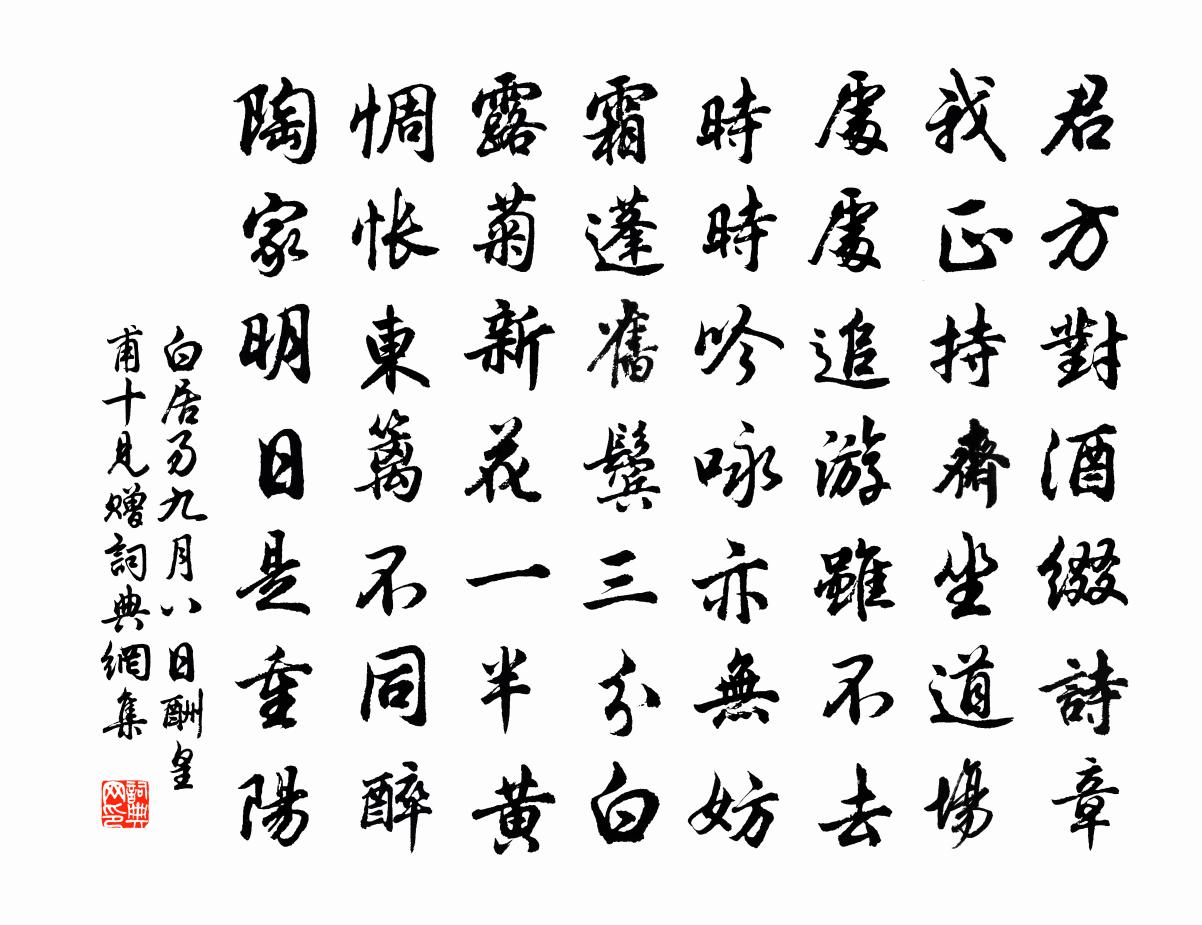 君方對酒綴詩章
我正持齋坐道場
處處追游雖不去
時時吟咏亦無妨
霜蓬舊鬢三分白
露菊新花一半黄
惆悵東籬不同醉
陶家明日是重陽
白居易九月八日酬皇
甫十見贈詞典網集
詞典
网印